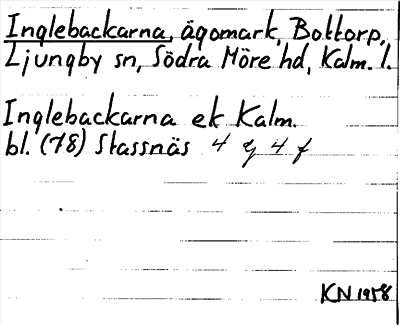 Inglebackarna, ägomark, Bottorp,
Ljungby sn, Södra Möre hd, Kalm. l.
Inglebackarna ek Kalm.
bl. (78) Stassnäs 4 g 4 f
KN 1958